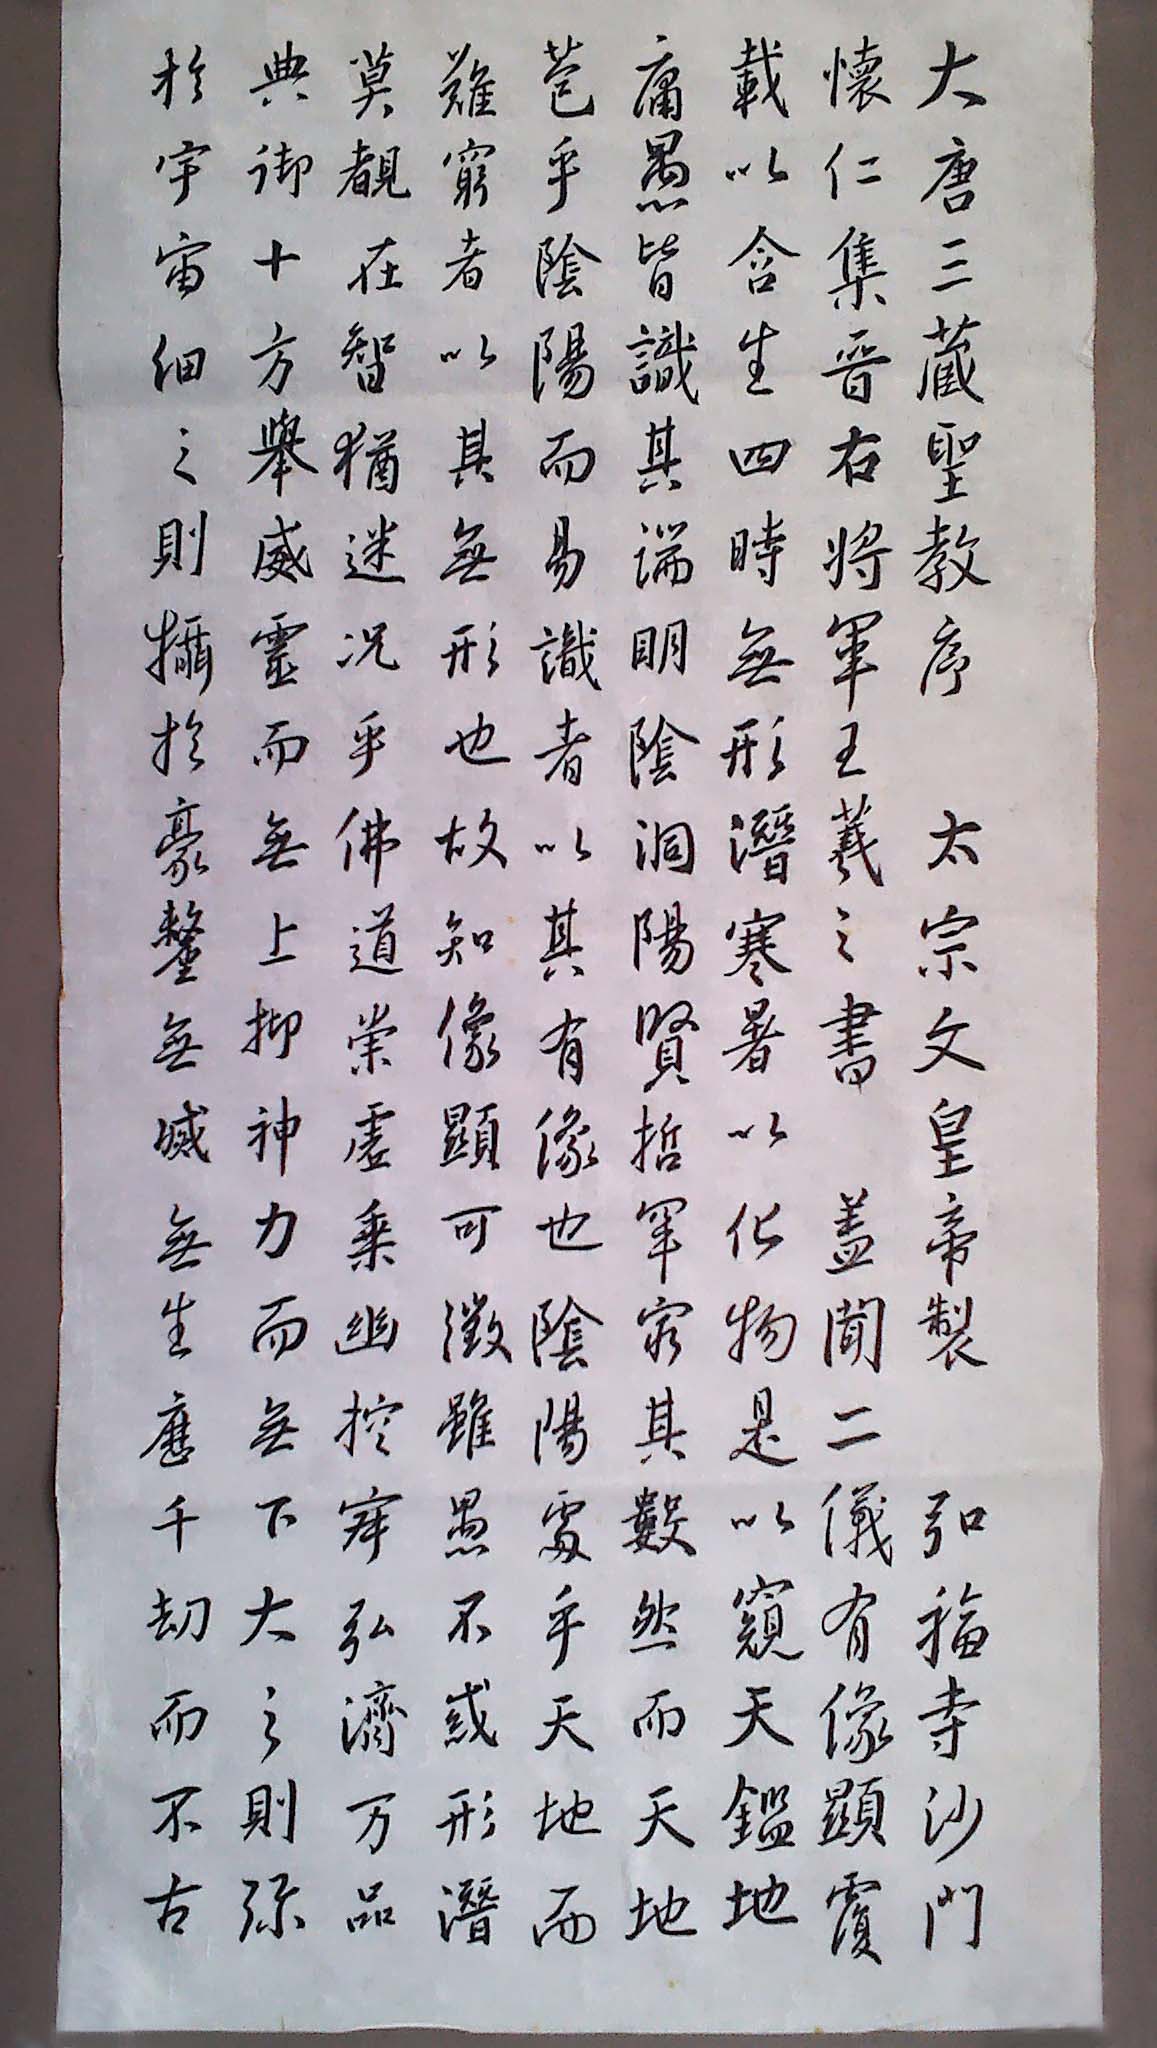 大唐三藏聖教序 太宗文皇帝製 弘福寺沙門
懷仁集晉右將軍王羲之書 蓋聞二儀有像顯覆
載以含生四時無形潛寒暑以化物是以窺天鑑地
庸愚皆識其端明陰洞陽賢哲罕窮其數然而天地
苞乎陰陽而易識者以其有像也陰陽處乎天地而
難窮者以其無形也故知像顯可徵雖愚不惑形潛
莫覩在智猶迷况乎佛道崇虛乘幽控寂弘濟万品
典御十方舉威靈而無上抑神力而無下大之則弥
於宇宙細之則攝於豪釐無滅無生應千劫而不古